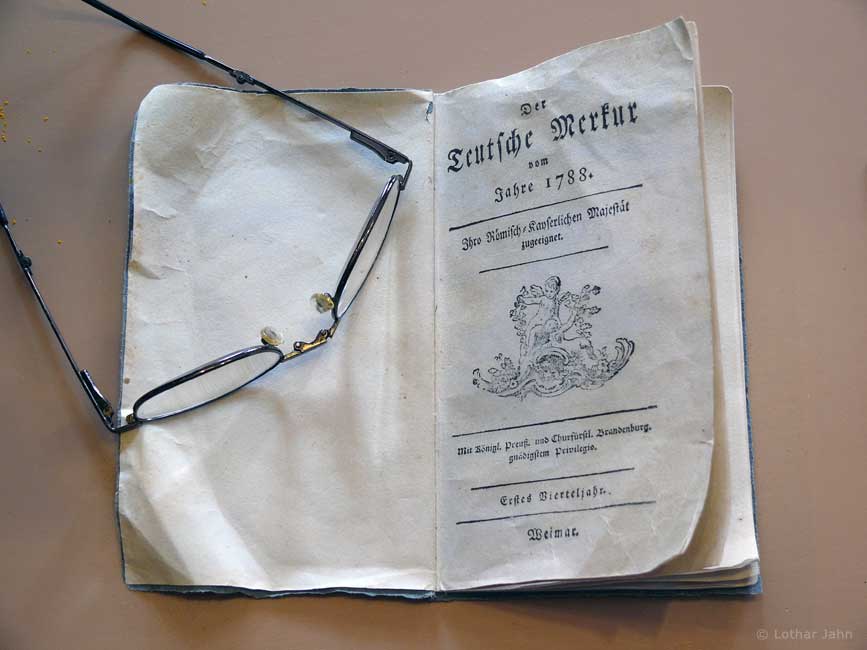 Der
Teutsche Merkur
vom
Jahre 1788.
Ihro Römisch-Kayserlichen Majestät
zugeeignet.
Mit Königl. Preuß. und Churfürstl. Brandenburg.
gnädigstem Privilegio.
Erstes Vierteljahr.
Weimar.
© Lothar Jahn